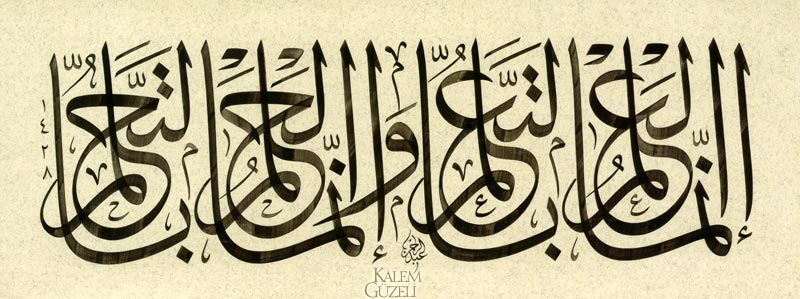 إنما العلم بالتعلم وإنما الحلم بالتحلم
١٤٢٨
KALEM
GÜZELİ